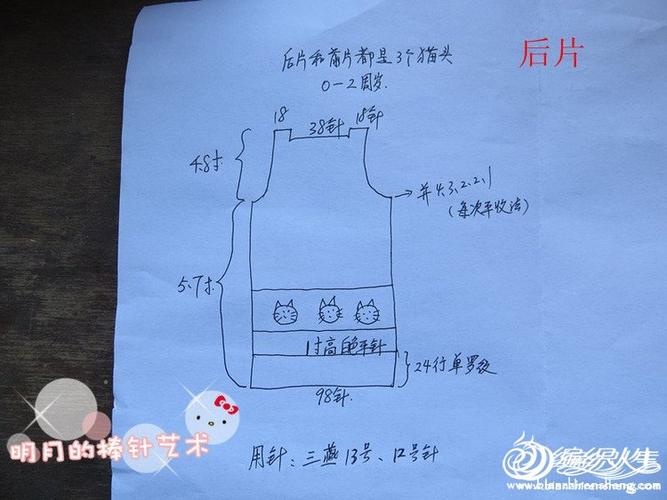 后片和前片都是3个猫头
后片
0-2周岁
18
38针
18针
4.8寸
并4.3.2.2.1
(每次平收法)
5.7寸
1寸高 平针
24行单罗纹
98针
用针：三燕13号、12号针
明月的棒针艺术
编织人生
www.bianzhirensheng.com